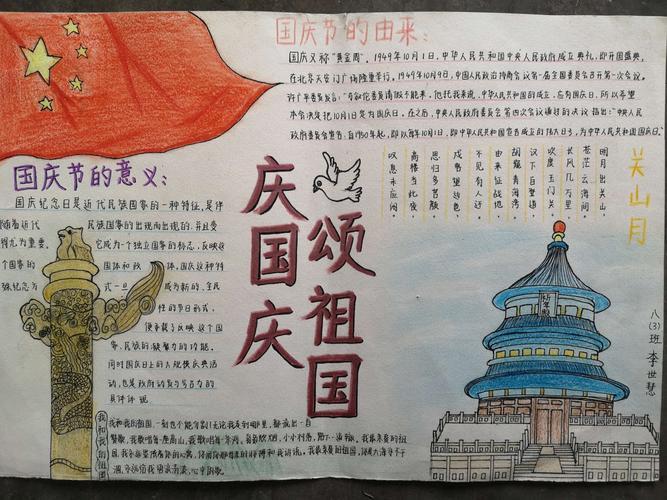 国庆节的由来:
国庆又称"黄金周"。1949年10月1日,中华人民共和国中央人民政府成立典礼,即开国盛典,
在北京天安门广场隆重举行。1949年10月9日,中国人民政治协商会议第一届全国委员会召开第一次会议。
许广平委员发言:"马叙伦委员请假不能来,他托我来说,中华人民共和国的成立,应有国庆日,所以希望
本会决定把10月1日定为国庆日。在之后,中央人民政府委员会第四次会议通过的决议指出:"中央人民
政府委员会宣告:自1950年起,即以每年10月1日,即中华人民共和国宣告成立的伟大日子,为中华人民共和国国庆日。
国庆节的意义:
国庆纪念日是近代民族国家的一种特征,是伴
随着近代
民族国家的出现而出现的,并且变
得尤为重要,
它成为一个独立国家的标志,反映这
个国家的
国体和政
体,国庆这种特
殊纪念方
式一旦
成为新的、全民
性的节日形式,
便承载了反映这个国
家、民族的凝聚力的功能。
同时国庆日上的大规模庆典活
动,也是政府动员与号召力的
具体体现
庆国庆
颂祖国
关山月
明月出天山,
苍茫云海间。
长风几万里,
吹度玉门关。
汉下白登道,
胡窥青海湾。
由来征战地,
不见有人还。
戍客望边色,
思归多苦颜。
高楼当此夜,
叹息未应闲。
祈年殿
八(3)班 李世慧
我和我的祖国
我和我的祖国,一刻也不能分割!无论我走到哪里,都流出一首
赞歌。我歌唱每一座高山,我歌唱每一条河。袅袅炊烟,小小村落,路上一道辙。我最亲爱的祖